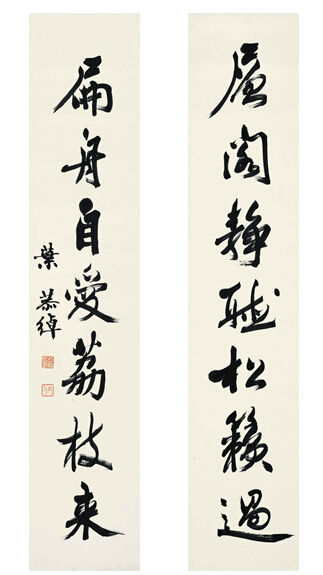 虚閣静聽松籟過
扁舟自愛荔枝来
葉恭綽